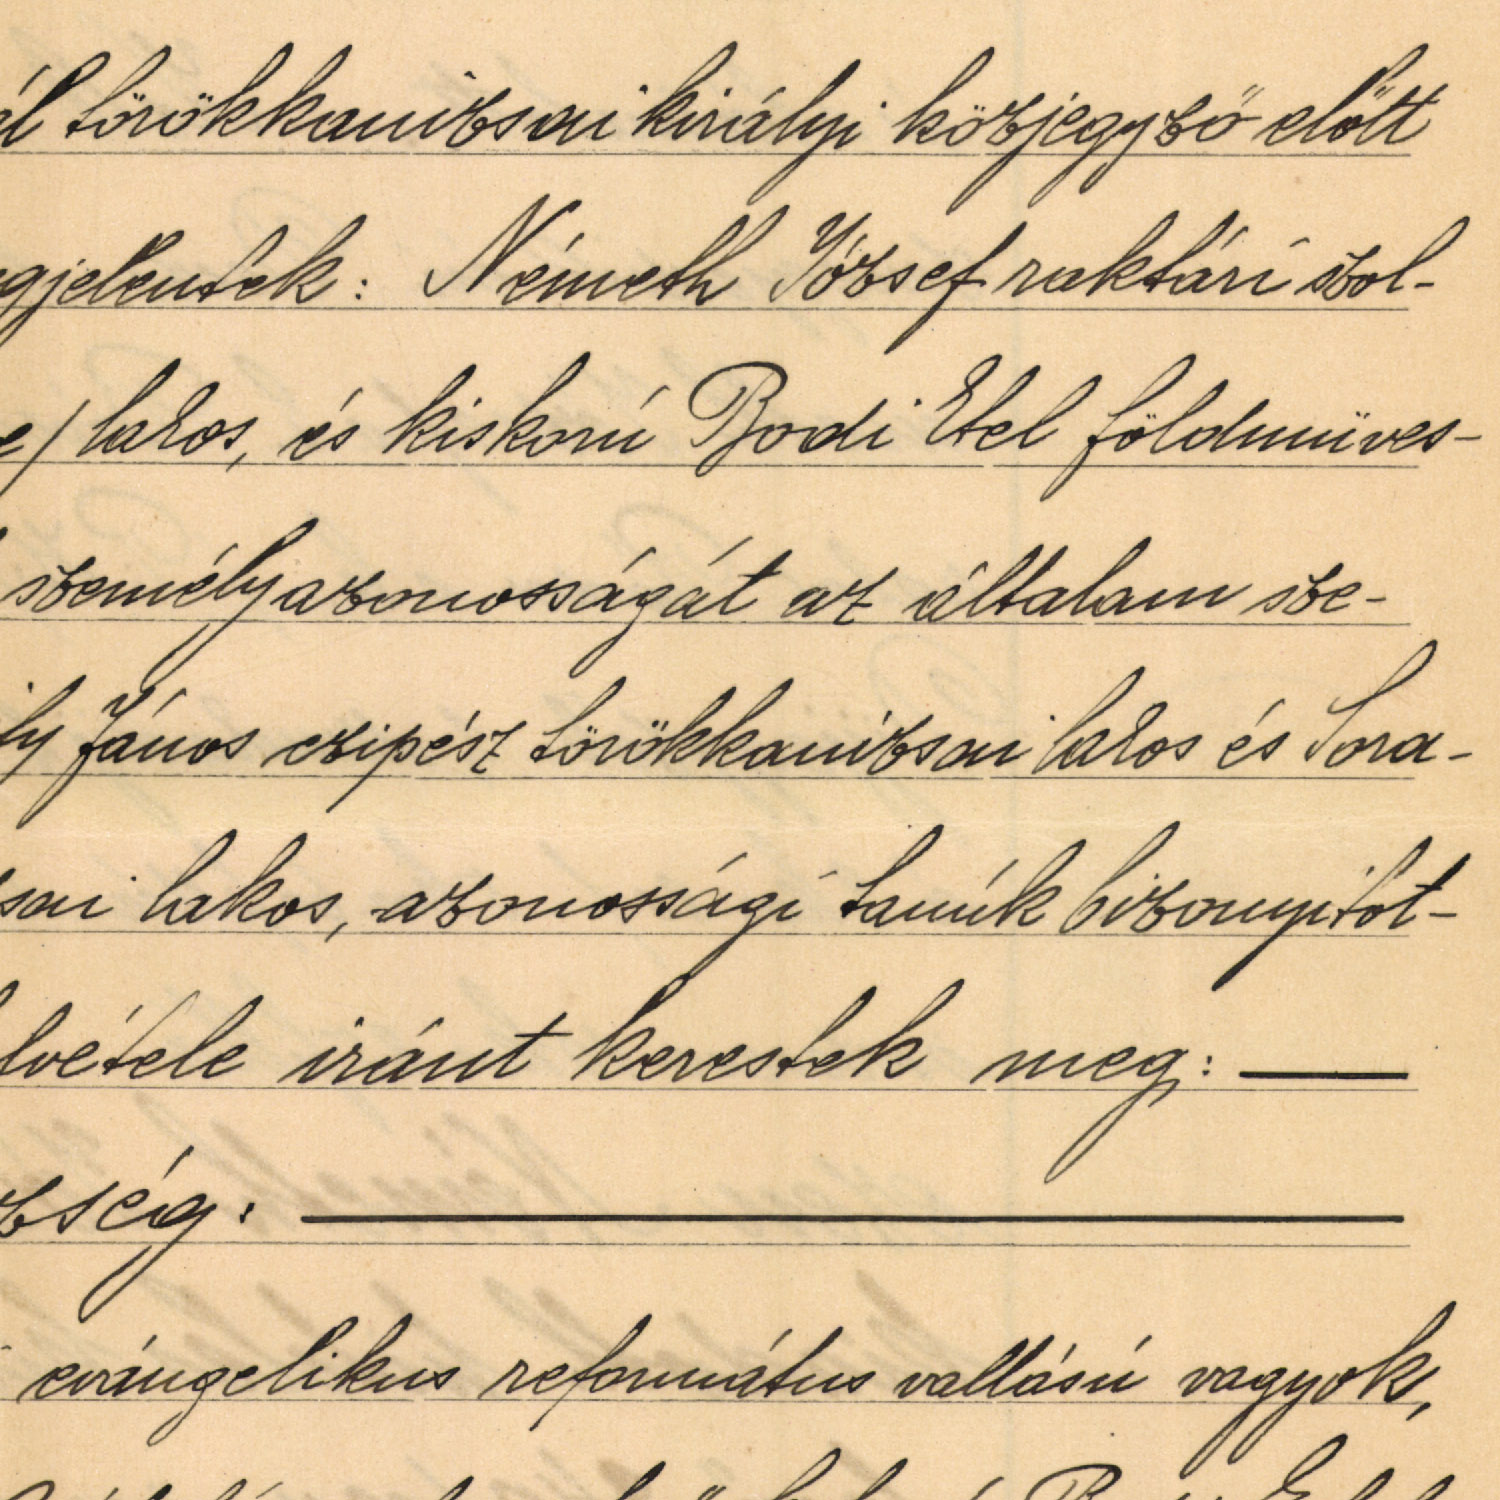 ál törökkanizsai királyi közjegyző előtt
egjelentek: Németh József raktári szol-
e/ lakos, és kiskorú Bodi Etel földmüves-
személyazonosságát az általam sze-
ily János czipész törökkanizsai lakos és Sora-
sai lakos, azonossági tanúk bizonyitot-
lvétele iránt kerestek meg:
zség:
evángelikus református vallású vagyok,